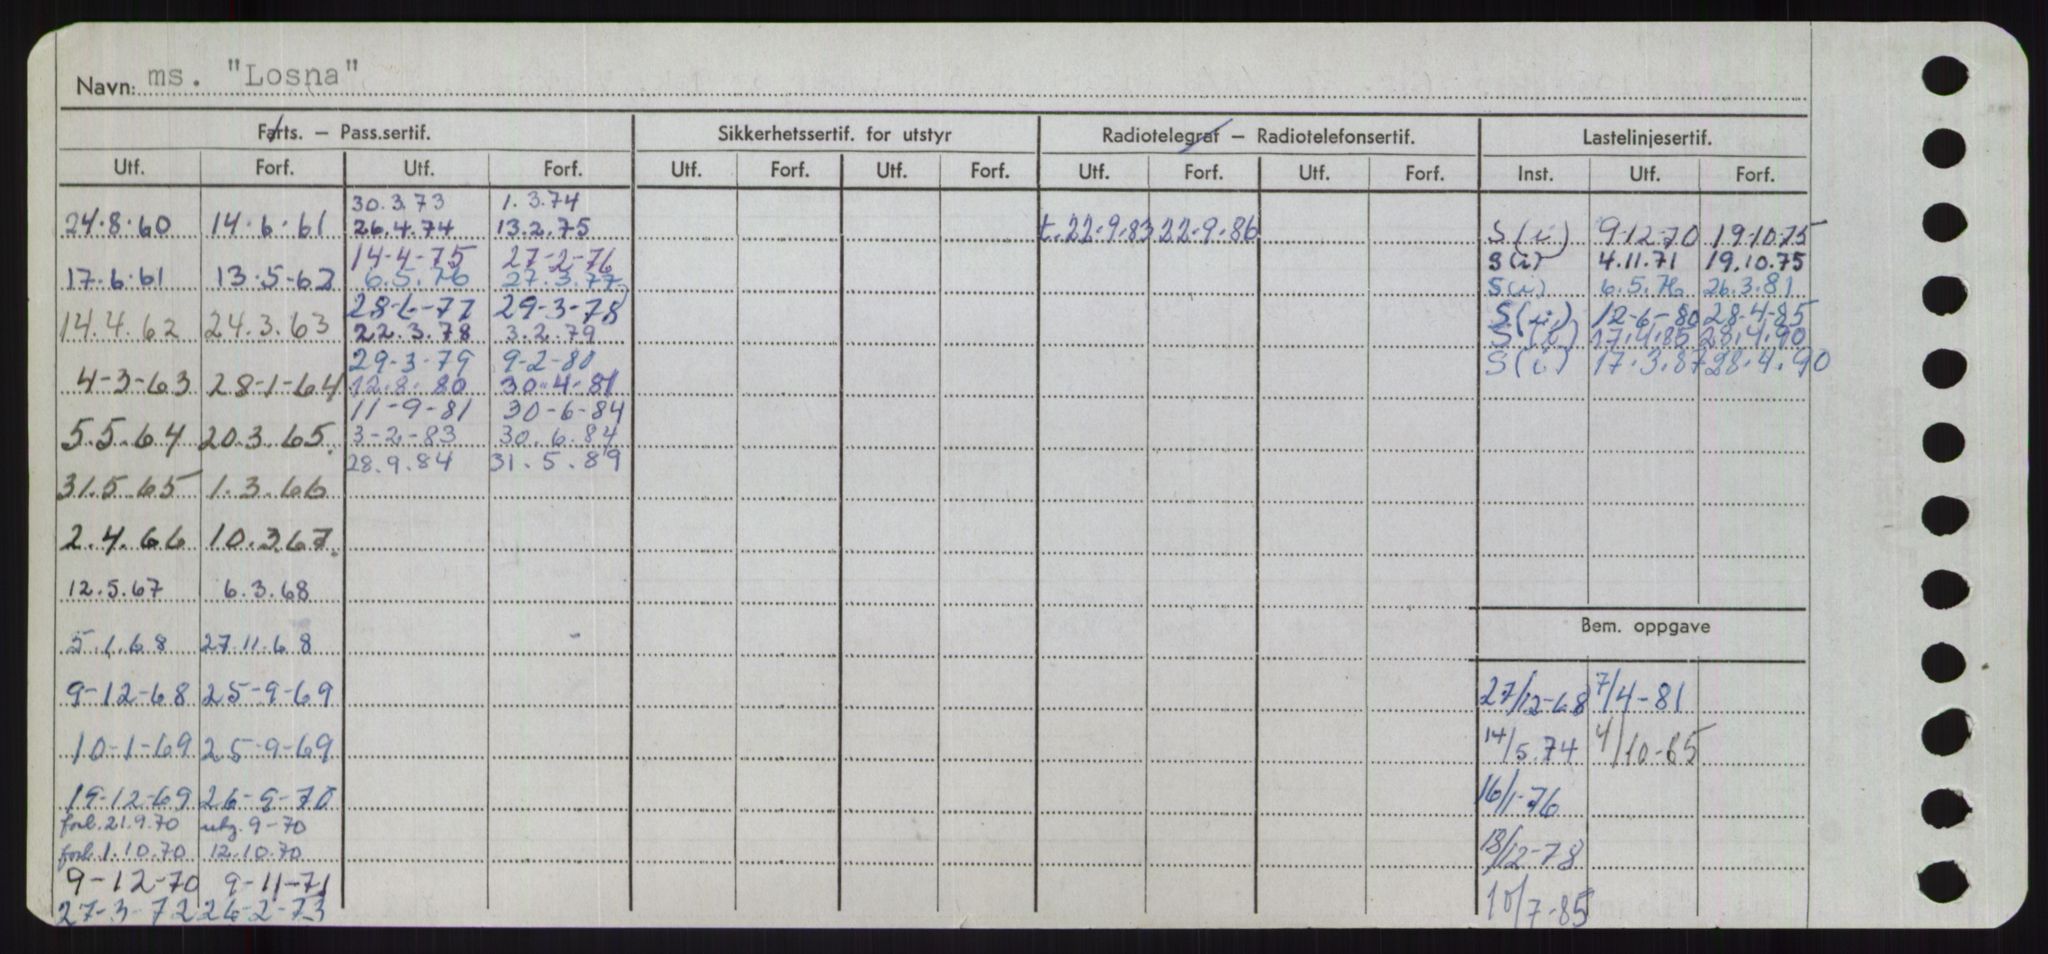 Navn: ms. "Losna"
Farts. – Pass.sertif. Sikkerhetssertif. for utstyr Radiotelegraf – Radiotelefonsertif. Lastelinjesertif.
Utf. Forf. Utf. Forf. Utf. Forf. Utf. Forf. Utf. Forf. Utf. Forf. Inst. Utf. Forf.
30.3.73 1.3.74
24.8.60 14.6.61 26.4.74 13.2.75 t.22.9.83 22.9.86 S(i) 9.12.70 19.10.75
14-4-75 27-2-76 S(i) 4.11.71 19.10.75
17.6.61 13.5-62 6.5.76 27.3.77 S(i) 6.5.76 26.3.81
28-6-77 29-3-78 S(i) 12-6-80 28-4-85
14.4.62 24.3.63 22.3.78 3.2.79 S(i) 17.4.85 28.4.90
29-3-79 9-2-80 S(i) 17.3.87 28.4.90
4-3-63 28-1-64 12.8.80 30.4-81
11-9-81 30-6-84
5.5.64 20.3.65. 3-2-83 30.6.84
28.9.84 31.5.89
31.5.65 1.3.66
2.4.66 10.3.67.
12.5.67 6.3.68
Bem. oppgave
5.1.68 27.11.68
9-12-68 25-9-69 27/12-68 7/4-81
10-1-69 25-9-69 14/5.74 4/10-85
19-12-69 26-9-70 16/1-76
forl. 21.9.70 utg. 9-70
forl. 1.10.70 12.10.70 13/12-78
9-12-70 9-11-71
27-3-72 26-2-73 10/7-85